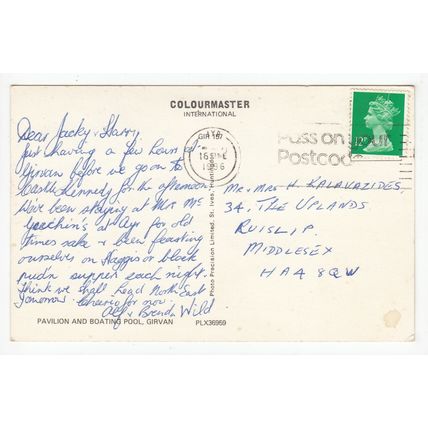 COLOURMASTER
INTERNATIONAL
Dear Jacky & Harry,
Just having a few hours at
Girvan before we go on to
Castle Kennedy for the afternoon.
We've been staying at Mrs Mc
at Ayr for old
times sake & been feasting
ourselves on Haggis or black
pud'n suppers each night.
Think we shall head North East
Tomorrow. Cheerio for now.
Alf & Brenda Wild
PAVILION AND BOATING POOL, GIRVAN
PLX36959
Photo Precision Limited, St. Ives,
AYR
16
1986
Pass on your
Postcode
12
Mr. Mrs H. KALAVAZIDES,
34, THE UPLANDS
RUISLIP,
MIDDLESEX
HA4 8QW